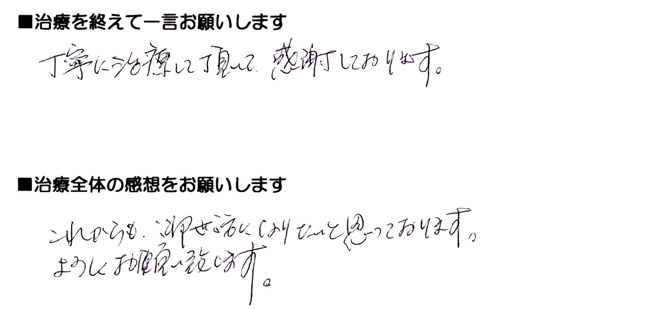 ■治療を終えて一言お願いします
丁寧に治療して頂いて、感謝しております。
■治療全体の感想をお願いします
これからも、御世話になりたいと思っております。
よろしくお願い致します。